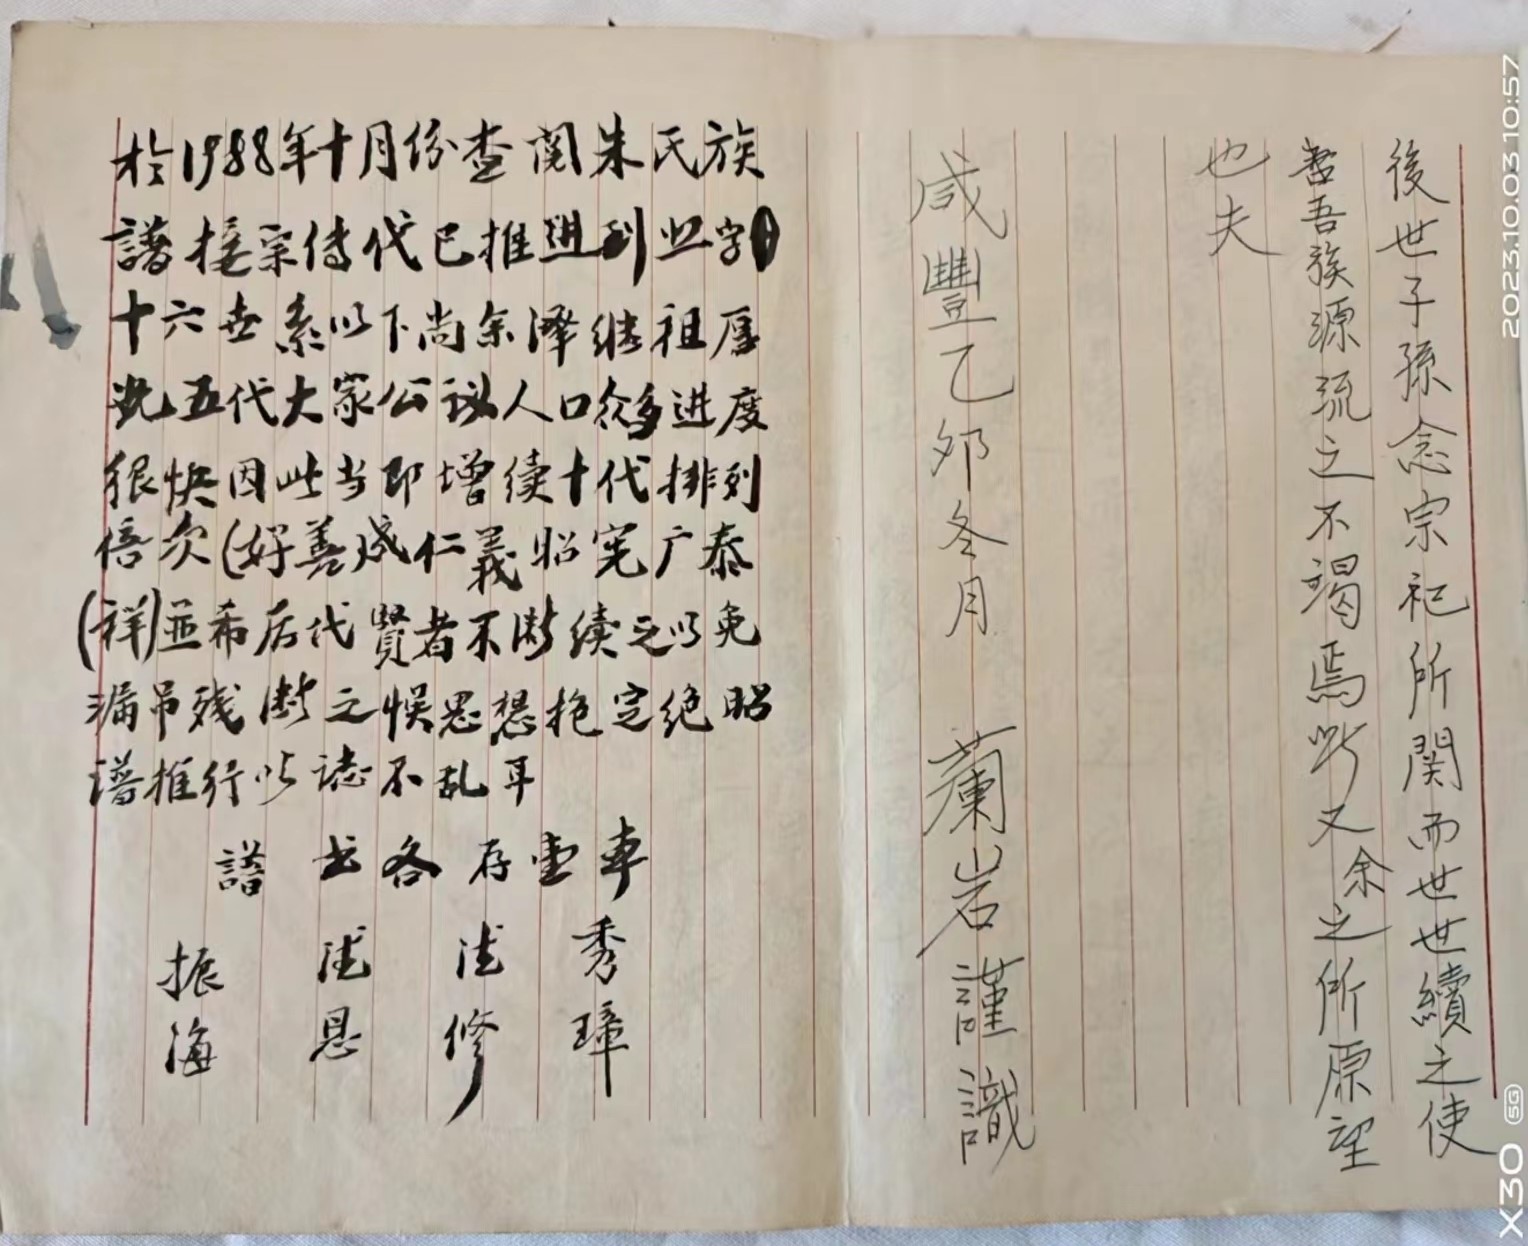 後世子孫念宗祀所関而世世續之使
吾族源流之不竭焉斯又余之所原望
也夫
咸豐乙卯冬月 蘭岩謹識
於1988年十月份查閲朱氏族
譜接宗傳代已推進到 字
十六世系以下尚余澤继祖厚
光五代大家公议人口众多进度
很快因此当即增续十代排列
倍次(好善成仁義昭宪广泰
(祥)並希后代賢者不断續之以免
漏吊残断之悮思想抱定绝昭
谱推行以誌不乱耳
譜 书各存壹本
秀璋
法修
法恩
振海
2023.10.03 10:57
X30 5G